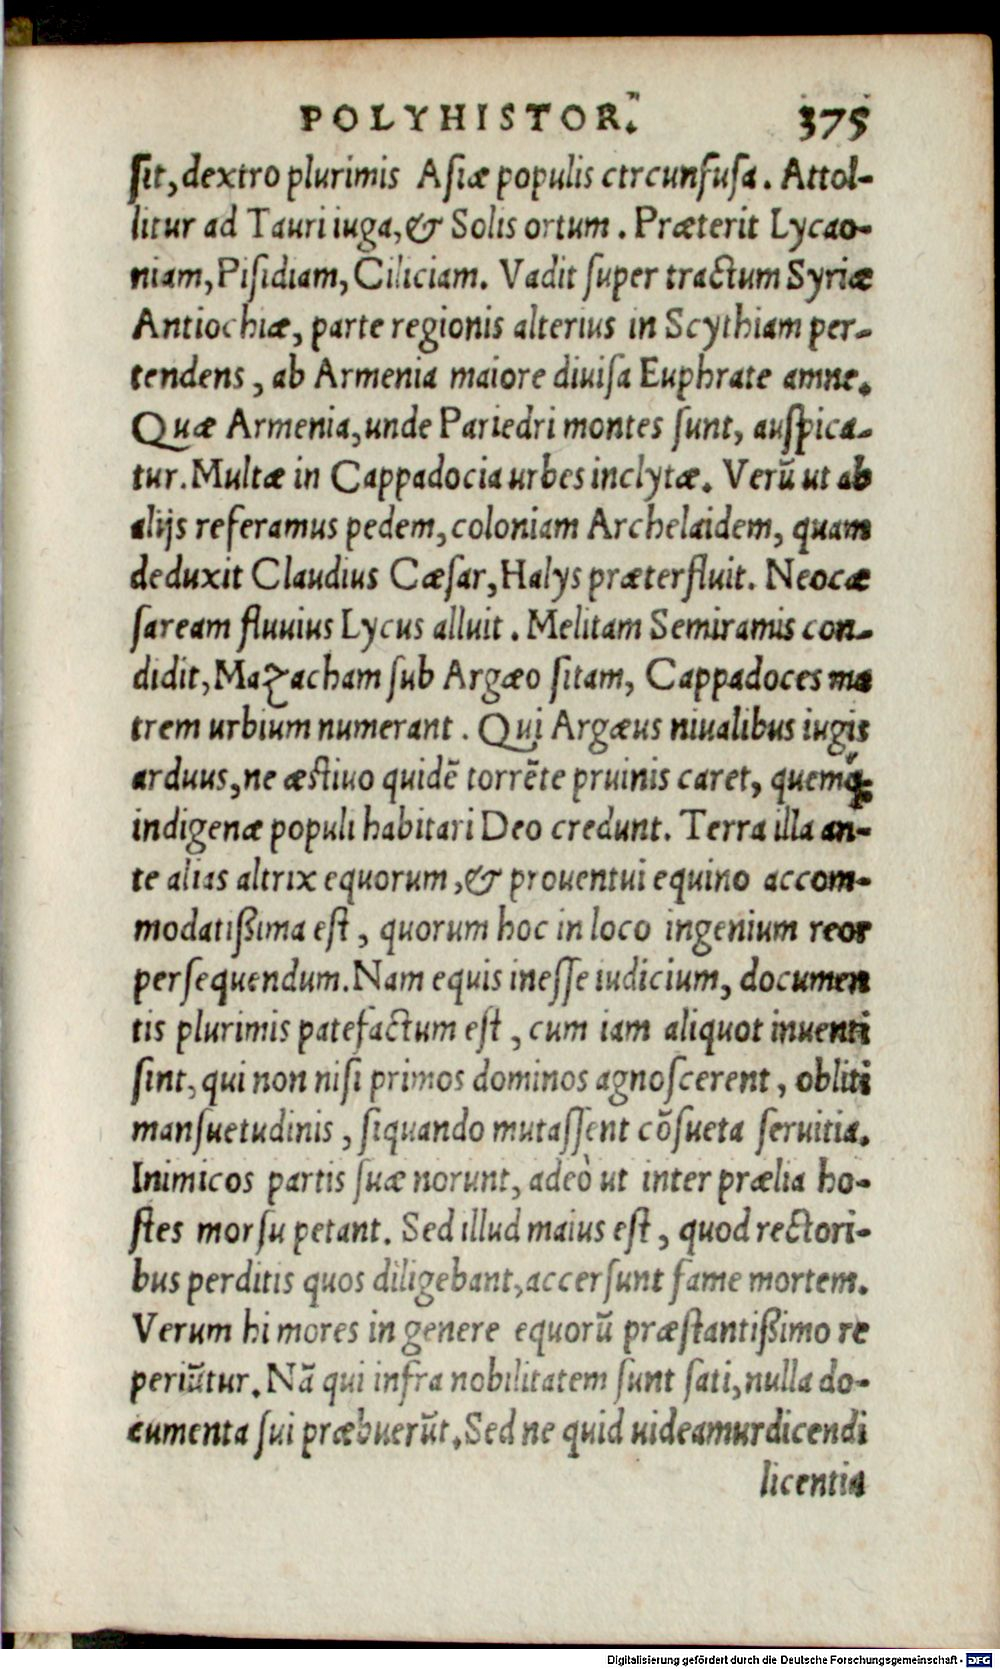 POLYHISTOR. 375
ſit, dextro plurimis Aſiæ populis ctrcunfuſa. Attol-
litur ad Tauri iuga, & Solis ortum. Præterit Lycao-
niam, Piſidiam, Ciliciam. Vadit ſuper tractum Syriæ
Antiochiæ, parte regionis alterius in Scythiam per-
tendens, ab Armenia maiore diuiſa Euphrate amne.
Quæ Armenia, unde Pariedri montes ſunt, auſpica-
tur. Multæ in Cappadocia urbes inclytæ. Verū ut ab
alijs referamus pedem, coloniam Archelaidem, quam
deduxit Claudius Cæſar, Halys præterfluit. Neocæ
ſaream fluuius Lycus alluit. Melitam Semiramis con-
didit, Mazacham ſub Argæo ſitam, Cappadoces ma
trem urbium numerant. Qui Argæus niualibus iugis
arduus, ne æſtiuo quidē torrēte pruinis caret, quemq́;
indigenæ populi habitari Deo credunt. Terra illa an-
te alias altrix equorum, & prouentui equino accom-
modatißima eſt, quorum hoc in loco ingenium reor
perſequendum. Nam equis ineſſe iudicium, documen
tis plurimis patefactum eſt, cum iam aliquot inuenti
ſint, qui non niſi primos dominos agnoſcerent, obliti
manſuetudinis, ſiquando mutaſſent cōſueta ſeruitia.
Inimicos partis ſuæ norunt, adeò ut inter prælia ho-
ſtes morſu petant. Sed illud maius eſt, quod rectori-
bus perditis quos diligebant, accerſunt fame mortem.
Verum hi mores in genere equorū præſtantißimo re
periūtur. Nā qui infra nobilitatem ſunt ſati, nulla do-
cumenta ſui præbuerūt. Sed ne quid uideamur dicendi
licentia
Digitalisierung gefördert durch die Deutsche Forschungsgemeinschaft - DFG